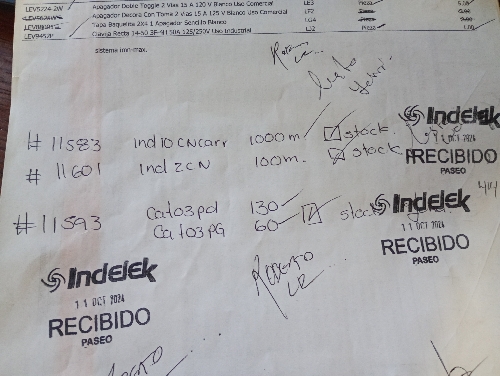 LEV5224-2W Apagador Doble Toggle 2 Vias 15 A 120 V Blanco Uso Comercial LE3 Pieza
Apagador Decora Con Toma 2 Vias 15 A 125 V Blanco Uso Comercial LF2 Pieza
Tapa Baquelita 2x4 1 Apagador Sencillo Blanco LG4 Pieza
Clavija Recta 14-50 3P-4H 50A 125/250V Uso Industrial LJ2 Pieza
sistema imn-max.
# 11583 Ind10CNcarr 1000m stock.
# 11601 Ind2CN 100m. stock
Indelek
OCT 2024
RECIBIDO
PASEO
#11593 Cat03pd 130 stock
Cat03PG 60
Indelek
11 OCT 2024
RECIBIDO
PASEO
Roberto
Indelek
11 OCT 2024
RECIBIDO
PASEO